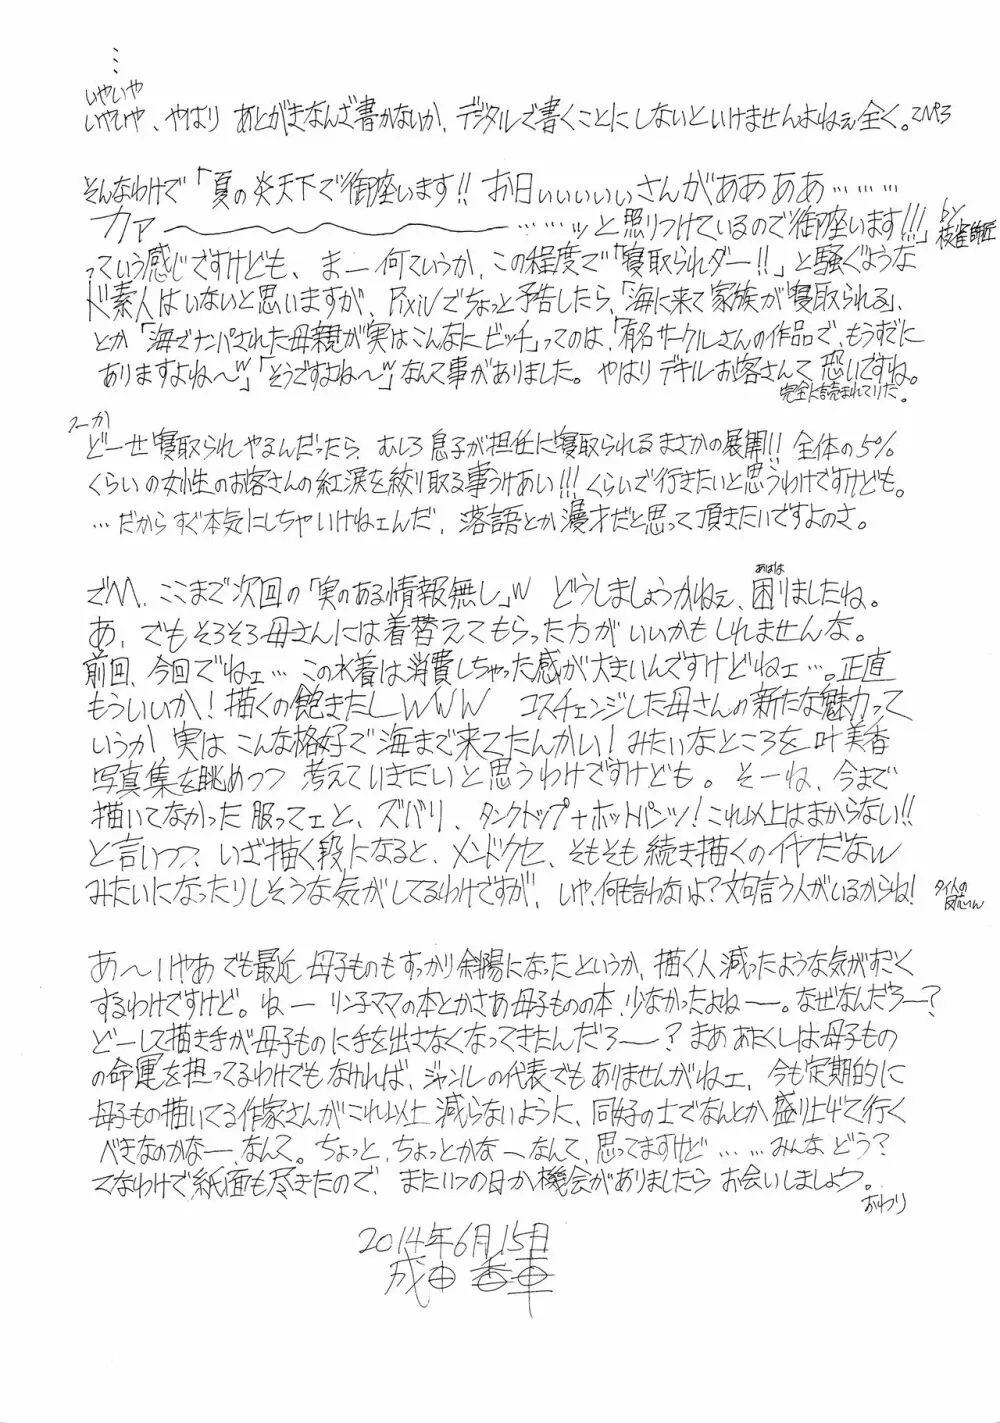 …
いやいや
いやいや、やはり あとがきなんざ書かないか、デジタルで書くことにしないといけませんよねぇ全く。2P3
そんなわけで「夏の炎天下で御座います!! お日ぃぃぃぃぃさんがああああ………
カァー……ッと照りつけているので御座います!!!」by枝雀師匠
っていう感じですけども、まー何ていうか、この程度で「寝取られダー!!」と騒ぐような
ド素人はいないと思いますが、Pixivでちょっと予告したら、「海に来て家族が寝取られる」、
とか「海でナンパされた母親が実はこんなにビッチ」ってのは、「有名サークルさんの作品で、もうすでに
ありますよね〜w」「そうですよね〜w」なんて事がありました。やはりデキルお客さんて恐いですね。
完全に読まれてりだ。
つーか
どーせ寝取られやるんだったら、むしろ息子が担任に寝取られるまさかの展開!! 全体の5%
くらいの女性のお客さんの紅涙を絞り取る事うけあい!!! くらいで行きたいと思うわけですけども。
…だからすぐ本気にしちゃいけねェんだ、落語とか漫才だと思って頂きたいですよのさ。
でM、ここまで次回の「実のある情報無し」w どうしましょうかねぇ、困りましたね。
あはは
あ、でもそろそろ母さんには着替えてもらった方がいいかもしれませんな。
前回、今回でねェ…この水着は消費しちゃった感が大きいんですけどねェ…。正直
もういいか!描くの飽きたしwww コスチェンジした母さんの新たな魅力って
いうか 実は こんな格好で海まで来てたんかい!みたいなところを 叶美香
写真集を眺めつつ 考えていきたいと思うわけですけども。そーね、今まで
描いてなかった服ってェと、ズバリ、タンクトップ+ホットパンツ!これ以上はまからない!!
と言いつつ、いざ描く段になると、メンドクセ、そもそも続き描くのイヤだなw
みたいになったりしそうな気がしてるわけですが、いや、何も言わないよ?文句言う人がいるからね!
あ〜いやあでも最近 母子ものもすっかり斜陽になったというか、描く人減ったような気がすごく
するわけですけど。ねーリン子ママの本とかさあ母子ものの本、少なかったよねー。なぜなんだろー?
どーして描き手が母子ものに手を出さなくなってきたんだろー?まああたくしは母子もの
の命運を担ってるわけでもなければ、ジャンルの代表でもありませんがねェ、今も定期的に
母子もの描いてる作家さんがこれ以上減らないように、同好の士でなんとか盛り上げて行く
べきなのかなー、なんて。ちょっと、ちょっとかなーなんて、思ってますけど……みんなどう?
てなわけで紙面も尽きたので、またいつの日か機会がありましたら お会いしましょう。
おわり
2014年6月15日
成田香車